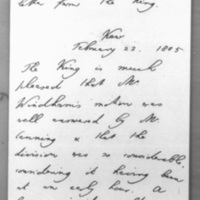 letter from the King.
Kew
February 22. 1805
The King is much
pleased that Mr.
Windham's motion was
well answered by Mr.
Canning & that the
division was so considerable,
considering it having been
at an early hour. A